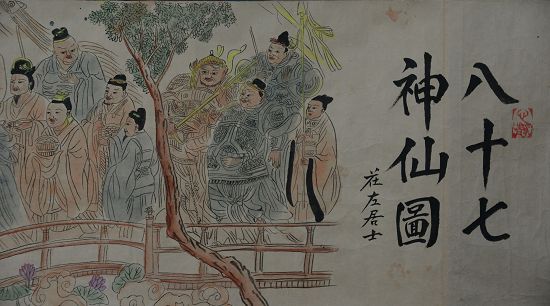 八十七
神仙圖
莊左居士